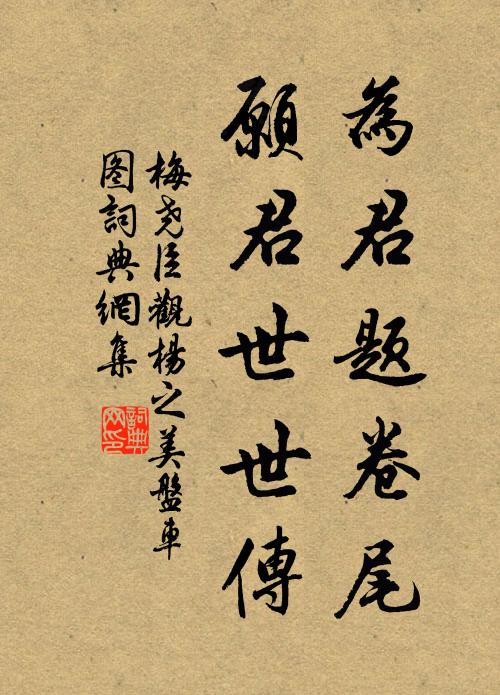 為君題卷尾
願君世世傳
梅堯臣觀楊之美盤車
图詞典網集
詞典網印